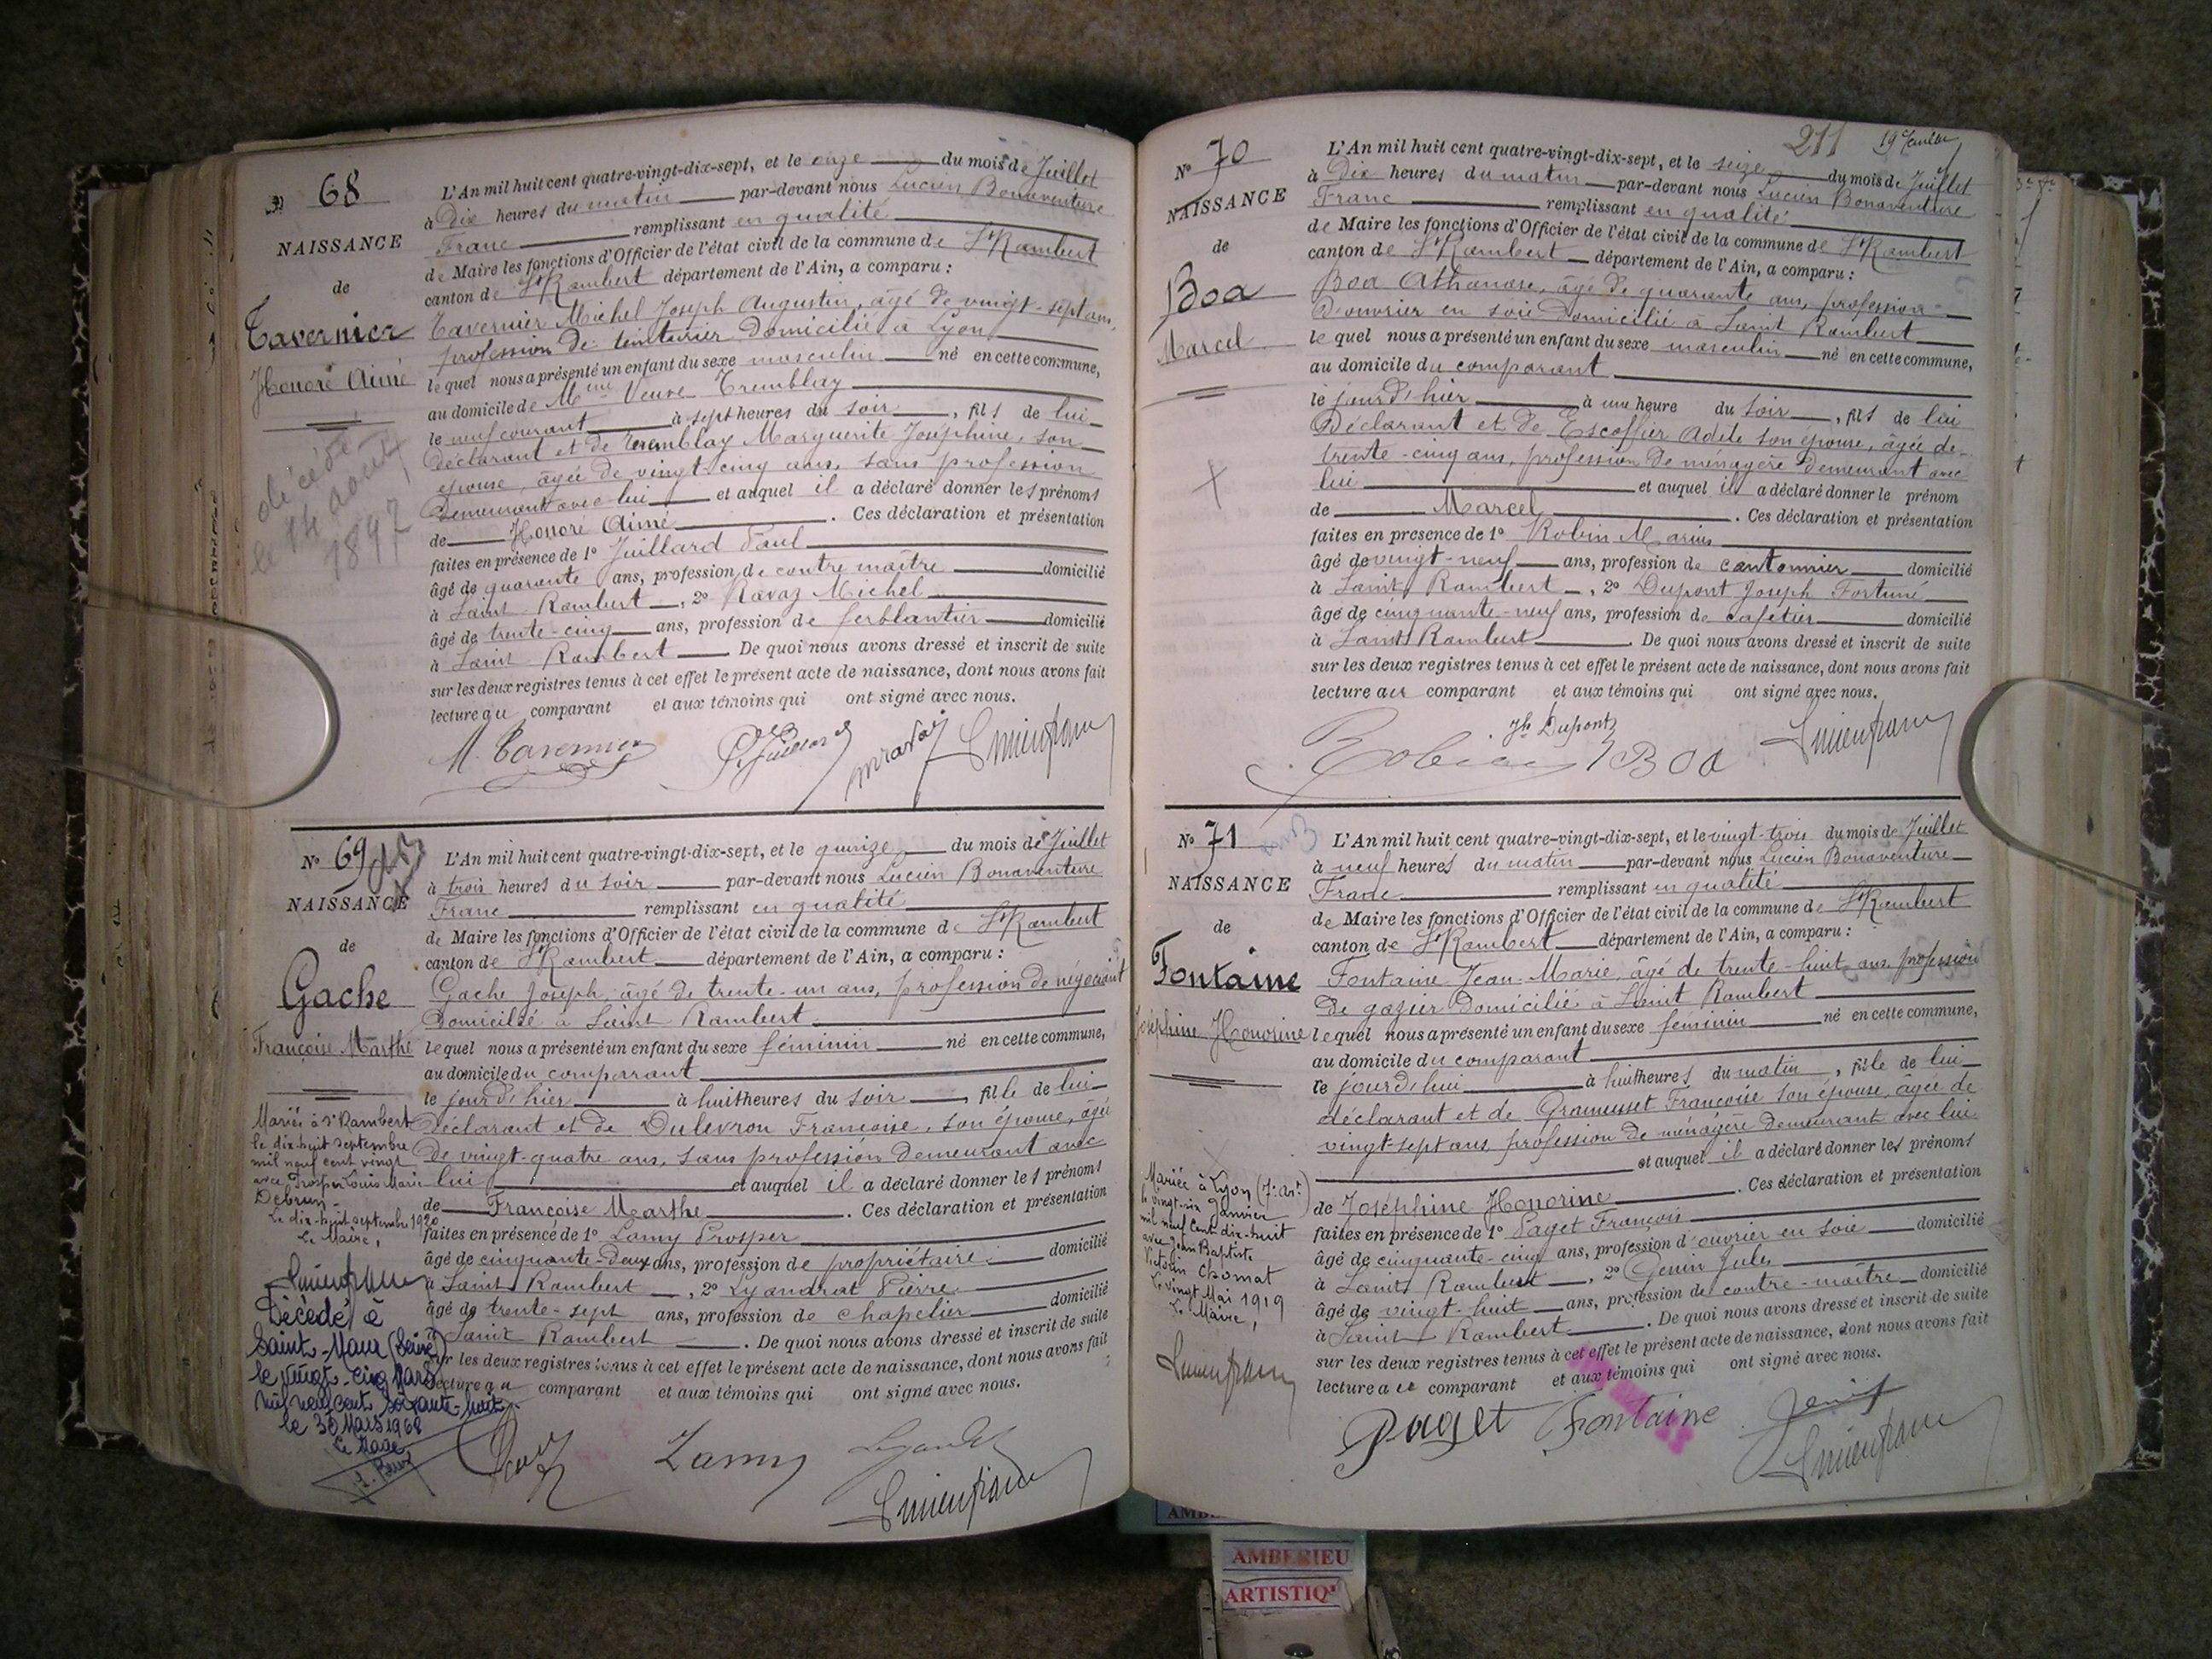 N° 68
NAISSANCE
de
Tavernier
Honoré Aimé
décédé
le 14 août
1897
L'An mil huit cent quatre-vingt-dix-sept, et le onze du mois de Juillet
à Dix heures du matin par-devant nous Lucien Bonaventure
Franc remplissant en qualité
de Maire les fonctions d'Officier de l'état civil de la commune de St Rambert
canton de St Rambert département de l'Ain, a comparu :
Tavernier Michel Joseph Augustin, âgé de vingt-sept ans,
profession de teinturier Domicilié à Lyon
lequel nous a présenté un enfant du sexe masculin né en cette commune,
au domicile de Mme Veuve Tremblay
le neuf courant à sept heures du soir, fils de lui
déclarant et de Tremblay Marguerite Joséphine, son
épouse, âgée de vingt-cinq ans, sans profession
Demeurant avec lui et auquel il a déclaré donner les prénoms
de Honoré Aimé. Ces déclaration et présentation
faites en présence de 1° Juillard Paul
âgé de quarante ans, profession de contre maître domicilié
à Saint Rambert, 2° Ravaz Michel
âgé de trente-cinq ans, profession de ferblantier domicilié
à Saint Rambert De quoi nous avons dressé et inscrit de suite
sur les deux registres tenus à cet effet le présent acte de naissance, dont nous avons fait
lecture au comparant et aux témoins qui ont signé avec nous.
M. Tavernier P. Juillard M Ravaz Lucien franc
N° 69
NAISSANCE
de
Gache
Françoise Marthe
Mariée à St Rambert
le dix-huit septembre
mil neuf cent vingt
avec Prosper Louis Marie
Debrun
Le dix-huit septembre 1920
Le Maire,
Lucien franc
Décédée à
Saint-Maur (Seine)
le vingt-cinq Mars
mil neuf cent soixante-huit
le 30 Mars 1968
Le Maire
L'An mil huit cent quatre-vingt-dix-sept, et le quinze du mois de Juillet
à trois heures du soir par-devant nous Lucien Bonaventure
Franc remplissant en qualité
de Maire les fonctions d'Officier de l'état civil de la commune de St Rambert
canton de St Rambert département de l'Ain, a comparu :
Gache Joseph, âgé de trente-un ans, profession de négociant
Domicilié à Saint Rambert
lequel nous a présenté un enfant du sexe féminin né en cette commune,
au domicile du comparant
le jour d'hier à huit heures du soir, fille de lui
Déclarant et de Dulevron Françoise, son épouse, âgée
de vingt-quatre ans, sans profession Demeurant avec
lui et auquel il a déclaré donner les prénoms
de Françoise Marthe. Ces déclaration et présentation
faites en présence de 1° Lamy Prosper
âgé de cinquante-deux ans, profession de propriétaire domicilié
à Saint Rambert, 2° Lyandrat Pierre
âgé de trente-sept ans, profession de chapelier domicilié
à Saint Rambert. De quoi nous avons dressé et inscrit de suite
sur les deux registres tenus à cet effet le présent acte de naissance, dont nous avons fait
lecture au comparant et aux témoins qui ont signé avec nous.
Lamy Lyandrat
Lucien franc
211
N° 70
NAISSANCE
de
Boa
Marcel
L'An mil huit cent quatre-vingt-dix-sept, et le seize du mois de Juillet
à Dix heures du matin par-devant nous Lucien Bonaventure
Franc remplissant en qualité
de Maire les fonctions d'Officier de l'état civil de la commune de St Rambert
canton de St Rambert département de l'Ain, a comparu :
Boa Athanase, âgé de quarante ans, profession
D'ouvrier en soie Domicilié à Saint Rambert
lequel nous a présenté un enfant du sexe masculin né en cette commune,
au domicile du comparant
le jour d'hier à une heure du soir, fils de lui
Déclarant et de Escoffier Adèle son épouse, âgée de
trente-cinq ans, profession de ménagère Demeurant avec
lui et auquel il a déclaré donner le prénom
de Marcel. Ces déclaration et présentation
faites en présence de 1° Robin Marius
âgé de vingt-neuf ans, profession de cantonnier domicilié
à Saint Rambert, 2° Dupont Joseph Fortuné
âgé de cinquante-neuf ans, profession de cafetier domicilié
à Saint Rambert. De quoi nous avons dressé et inscrit de suite
sur les deux registres tenus à cet effet le présent acte de naissance, dont nous avons fait
lecture au comparant et aux témoins qui ont signé avec nous.
Robin Jh Dupont Boa Lucien franc
N° 71
NAISSANCE
de
Fontaine
Joséphine Honorine
Mariée à Lyon (7e art)
le vingt-six Janvier
mil neuf cent dix-huit
avec Jean Baptiste
Victorin Chomat
Le vingt Mai 1919
Le Maire,
Lucien franc
L'An mil huit cent quatre-vingt-dix-sept, et le vingt-trois du mois de Juillet
à neuf heures du matin par-devant nous Lucien Bonaventure
Franc remplissant en qualité
de Maire les fonctions d'Officier de l'état civil de la commune de St Rambert
canton de St Rambert département de l'Ain, a comparu :
Fontaine Jean-Marie, âgé de trente-huit ans profession
De gazier Domicilié à Saint Rambert
lequel nous a présenté un enfant du sexe féminin né en cette commune,
au domicile du comparant
le jour d'hui à huit heures du matin, fille de lui
déclarant et de Gramusset Françoise son épouse, âgée de
vingt-sept ans, profession de ménagère demeurant avec lui
et auquel il a déclaré donner les prénoms
de Joséphine Honorine. Ces déclaration et présentation
faites en présence de 1° Paget François
âgé de cinquante-cinq ans, profession d'ouvrier en soie domicilié
à Saint Rambert, 2° Genin Jules
âgé de vingt-huit ans, profession de contre-maître domicilié
à Saint Rambert. De quoi nous avons dressé et inscrit de suite
sur les deux registres tenus à cet effet le présent acte de naissance, dont nous avons fait
lecture au comparant et aux témoins qui ont signé avec nous.
Paget Fontaine Genin
Lucien franc
AMBERIEU
ARTISTIQ